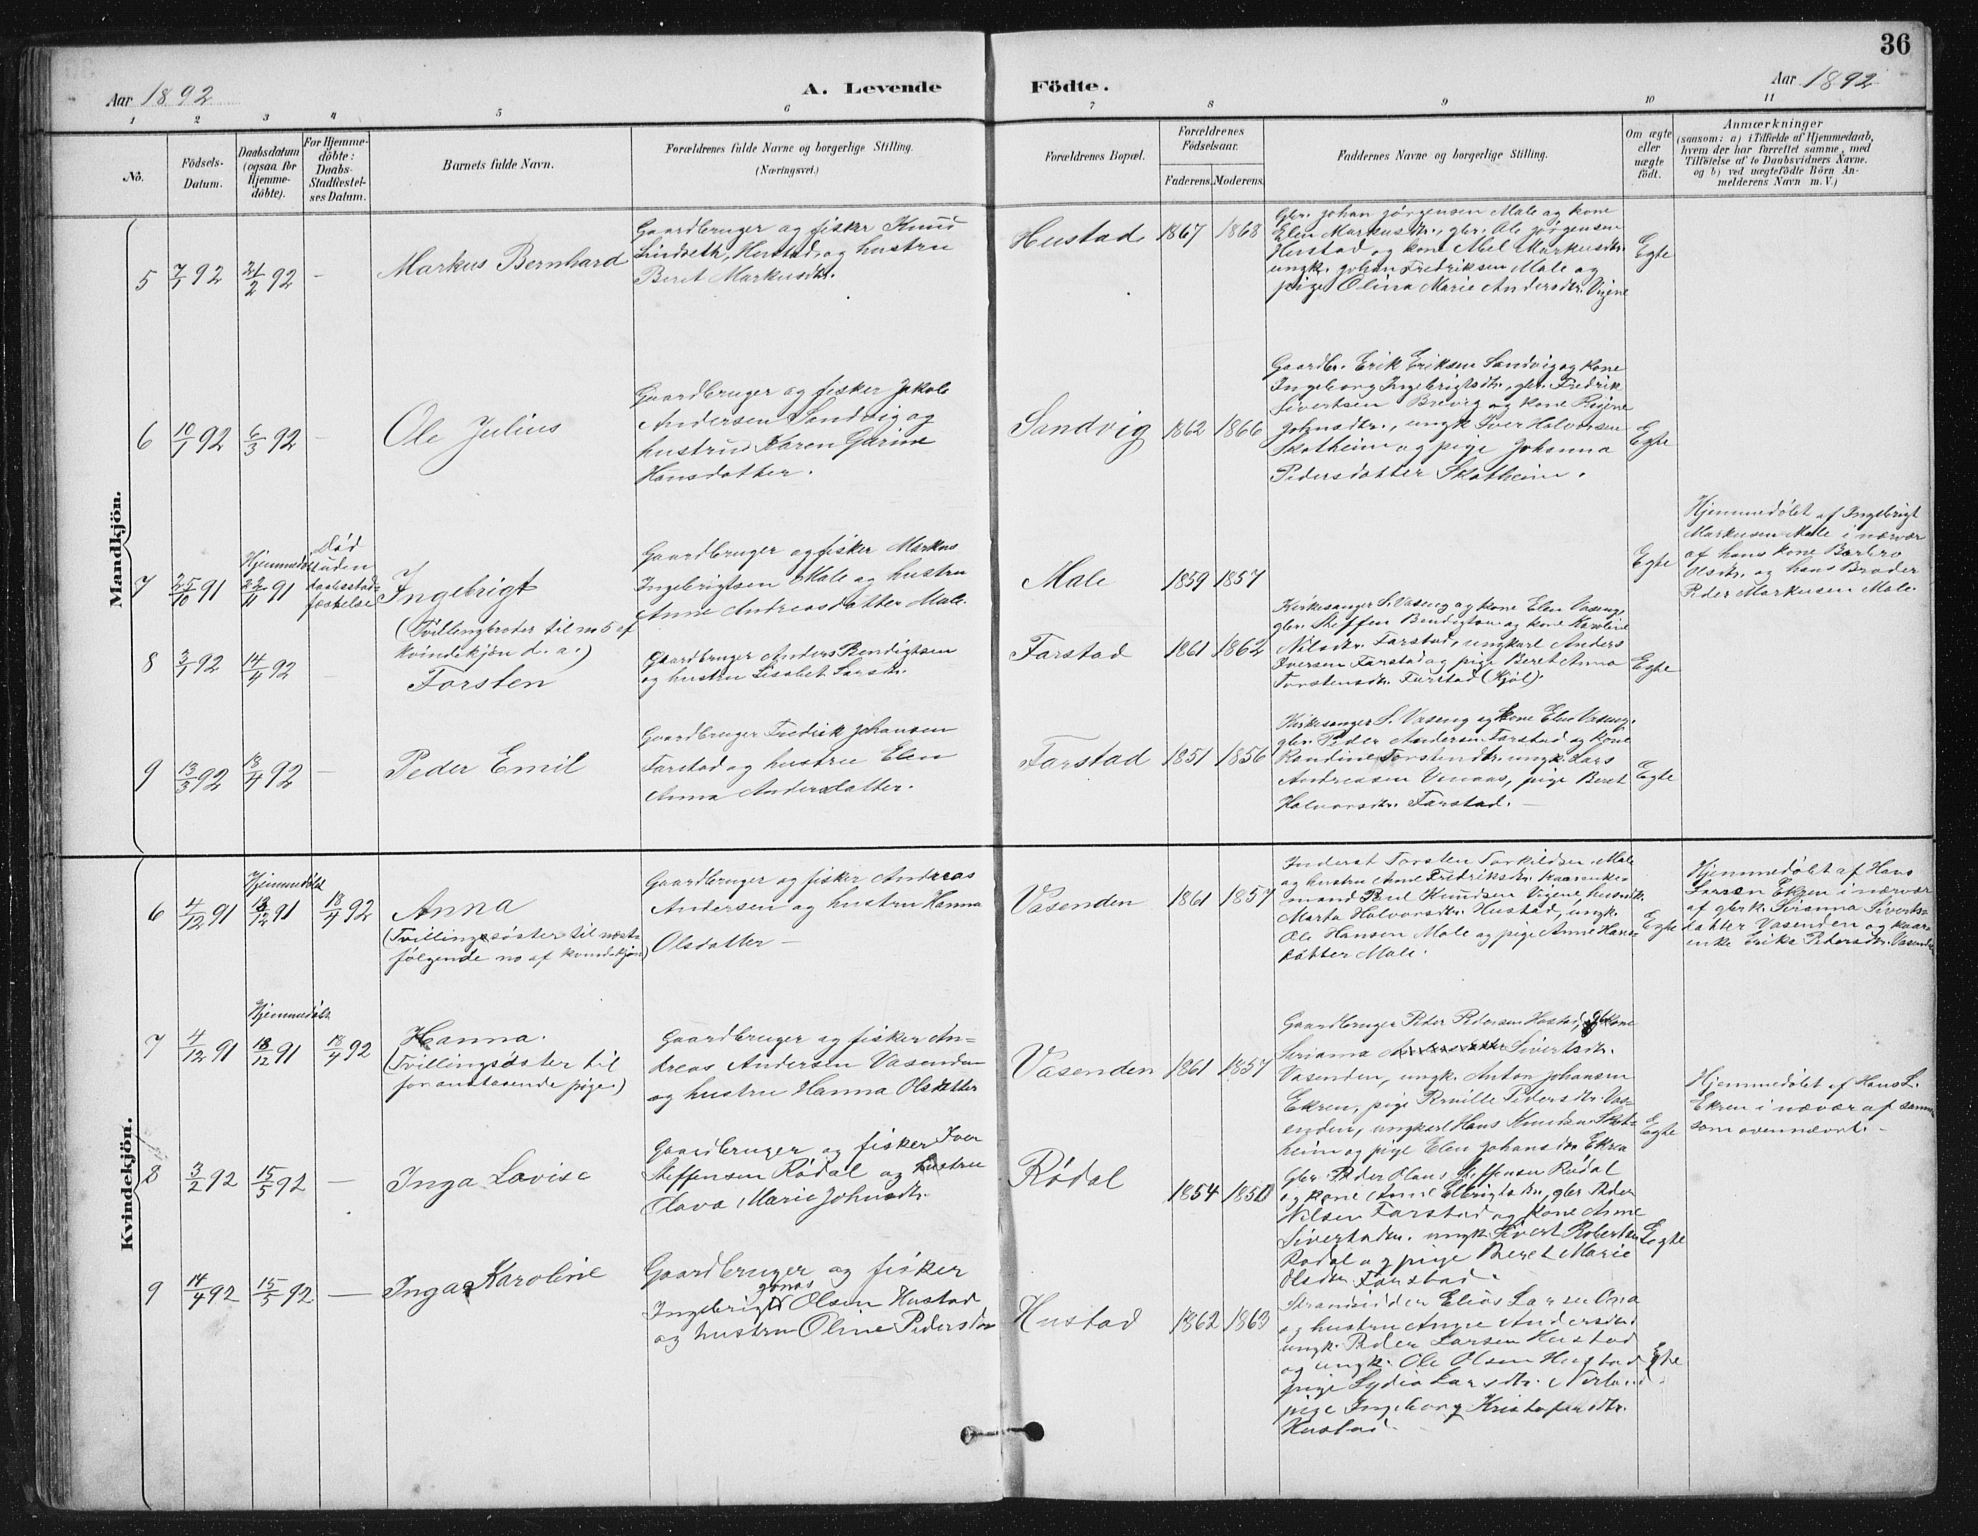 36
Aar 1892
A. Levende
Födte.
Aar 1892
1 2 3 4 5 6 7 8 9 10 11
No.
Födsels-
Datum.
Daabsdatum
(ogsaa for
Hjemme-
döbte).
For Hjemme-
döbte:
Daabs-
Stadfæstel-
ses Datum.
Barnets fulde Navn.
Forældrenes fulde Navne og borgerlige Stilling.
(Næringsvei.)
Forældrenes Bopæl.
Forældrenes
Födselsaar.
Faderens. Moderens.
Faddernes Navne og borgerlige Stilling.
Om ægte
eller
uægte
födt.
Anmærkninger
(saasom: a) i Tilfælde af Hjemmedaab,
hvem der har forrettet samme, med
Tilföielse af to Daabsvidners Navne.
og b) ved uægtefödte Börn An-
melderens Navn m. V.)
Mandkjön.
5
7/1 92
21/2 92
-
Markus Bernhard
Gaardbruger og fisker Knud
Lindseth, Hustad, og hustru
Beret Markusdtr.
Hustad
1867
1868
Gbr. Johan Jørgensen Male og kone
Elen Markusdtr., gbr. Ole Jørgensen
Hustad og kone Abel Markusdtr.
ungk. Johan Fredriksen Male og
pige Olina Marie Andersdtr. Vigene
Egte
6
10/1 92
6/3 92
-
Ole Julius
Gaardbruger og fisker Jakob
Andersen Sandvig og
hustru Karen Gurine
Hansdatter.
Sandvig
1862
1866
Gaardbr. Erik Eriksen Sandvig og kone
Ingeborg Ingebrigtsdtr., gbr. Fredrik
Sivertsen Brevig og kone
Johnsdtr., ungk. Iver Halvorsen
Skotheim og pige Johanna
Pedersdatter Skotheim.
Egte
7
25/10 91
Hjemmedøbt
22/11 91
Død
uden
daabsstad-
fæstelse
Ingebrigt
(Tvillingbroder til no 5 af
kvindekjøn d. a.)
Gaardbruger og fisker Markus
Ingebrigtsen Male og hustru
Anne Andreasdatter Male.
Male
1859
1857
Egte
Hjemmedøbt af Ingebrigt
Markusen Male i nærvær
af hans kone Barbro
Olsdtr. og hans Broder
Peder Markusen Male.
8
3/1 92
14/4 92
-
Torsten
Gaardbruger Anders Bendigtsen
og hustru Lisabet Larsdtr.
Farstad
1861
1862
Kirkesanger S. Vaseng og kone Elen Vaseng,
gbr. Steffen Bendigtsen og kone Karoline
Nilsdtr. Farstad, ungkarl Anders
Iversen Farstad og pige Beret Anna
Torstensdtr. Farstad (Hjøl).
Egte
9
13/3 92
18/4 92
-
Peder Emil
Gaardbruger Fredrik Johansen
Farstad og hustru Elen
Anna Andersdatter.
Farstad
1851
1856
Kirkesanger S. Vaseng og kone Elen Vaseng.
gbr. Peder Andersen Farstad og kone
Randine Torstensdtr. ungk. Lars
Andreasen Venaas, pige Beret
Halvorsdtr. Farstad. -
Egte
Kvindekjön.
6
4/12 91
Hjemmedøbt
18/12 91
18/4 92
Anna
(Tvillingsøster til næst-
følgende no af kvindekjøn)
Gaardbruger og fisker Andreas
Andersen og hustru Hanna
Olsdatter -
Vasenden
1861
1857
Inderst Torsten Torkildsen Male
og hustru Ane Fredriksdtr.
mand Poul Knudsen Vigene,
Marta Halvorsdtr. Hustad, ungk.
Ole Hansen Male og pige Anne Hans-
datter Male.
Egte
Hjemmedøbt af Hans
Larsen Ekren i nærvær
af gbrk. Serianna Siverts-
datter Vasenden og kaar-
enke Erika Pedersdtr. Vasenden
7
4/12 91
Hjemmedøbt
18/12 91
18/4 92
Hanna.
(Tvillingsøster til
foranstaaende pige.)
Gaardbruger og fisker An-
dreas Andersen Vasenden
og hustru Hanna Olsdatter
Vasenden
1861
1857
Gaardbruger Peder Pedersen Hustad, gbrkone
Serianna Sivertsdtr.
Vasenden, ungk. Anton Johansen
Ekren, pige Pernille Pedersdtr. Vas-
enden, ungkarl Hans Knudsen Skot-
heim og pige Elen Johansdtr. Ekren
Egte
Hjemmedøbt af Hans L.
Ekren i nævær af samme
som ovennævnt. -
8
3/2 92
15/5 92
-
Inga Lovise
Gaardbruger og fisker Iver
Steffensen Rødal og hustru
Olava Marie Johnsdtr.
Rødal
1854
1850
Gbr. Peder Olaus Steffensen Rødal
og kone Anne Elbrigtsdtr, gbr Peder
Nilsen Farstad og kone Anne
Sivertsdtr. ungk. Sivert Robertsen
Rødal og pige Beret Marie
Olsdtr Farstad.
Egte
9
14/4 92
15/5 92
-
Inga Karoline
Gaardbruger og fisker
Ingebrigt Jonas Olsen Hustad
og hustru Oline Pedersdtr
Hustad
1862
1863
Strandsidder Elias Larsen
og hustru Anne Andersdtr.
ungk. Peder Larsen Hustad
og ungk. Ole Olsen Hustad
pige Lydia Larsdtr.
pige Ingeborg Kristofersdtr.
Hustad.
Egte